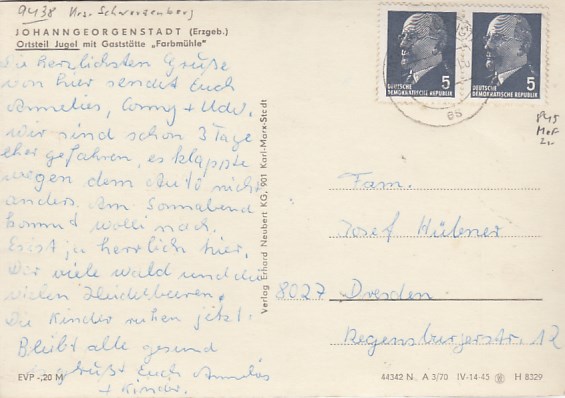 9438 Krs. Schwarzenberg
JOHANNGEORGENSTADT (Erzgeb.)
Ortsteil Jugel mit Gaststätte „Farbmühle"
Die herzlichsten Grüße
von hier sendet Euch
Annelies, Conny + Udo.
Wir sind schon 3 Tage
eher gefahren, es klappte
wegen dem Auto nicht
anders. Am Sonnabend
kommt Wolli nach.
Es ist ja herrlich hier.
Der viele Wald und die
vielen Heidelbeeren.
Die Kinder ruhen jetzt.
Bleibt alle gesund
es grüßt Euch Annelies
+ Kinder.
EVP -,20 M
Verlag Erhard Neubert KG, 901 Karl-Marx-Stadt
5
DEUTSCHE
DEMOKRATISCHE REPUBLIK
5
DEUTSCHE
DEMOKRATISCHE REPUBLIK
Fam.
Josef Hübner
8027 Dresden
Regensburgerstr. 12
44342 N A 3/70 IV-14-45 H 8329